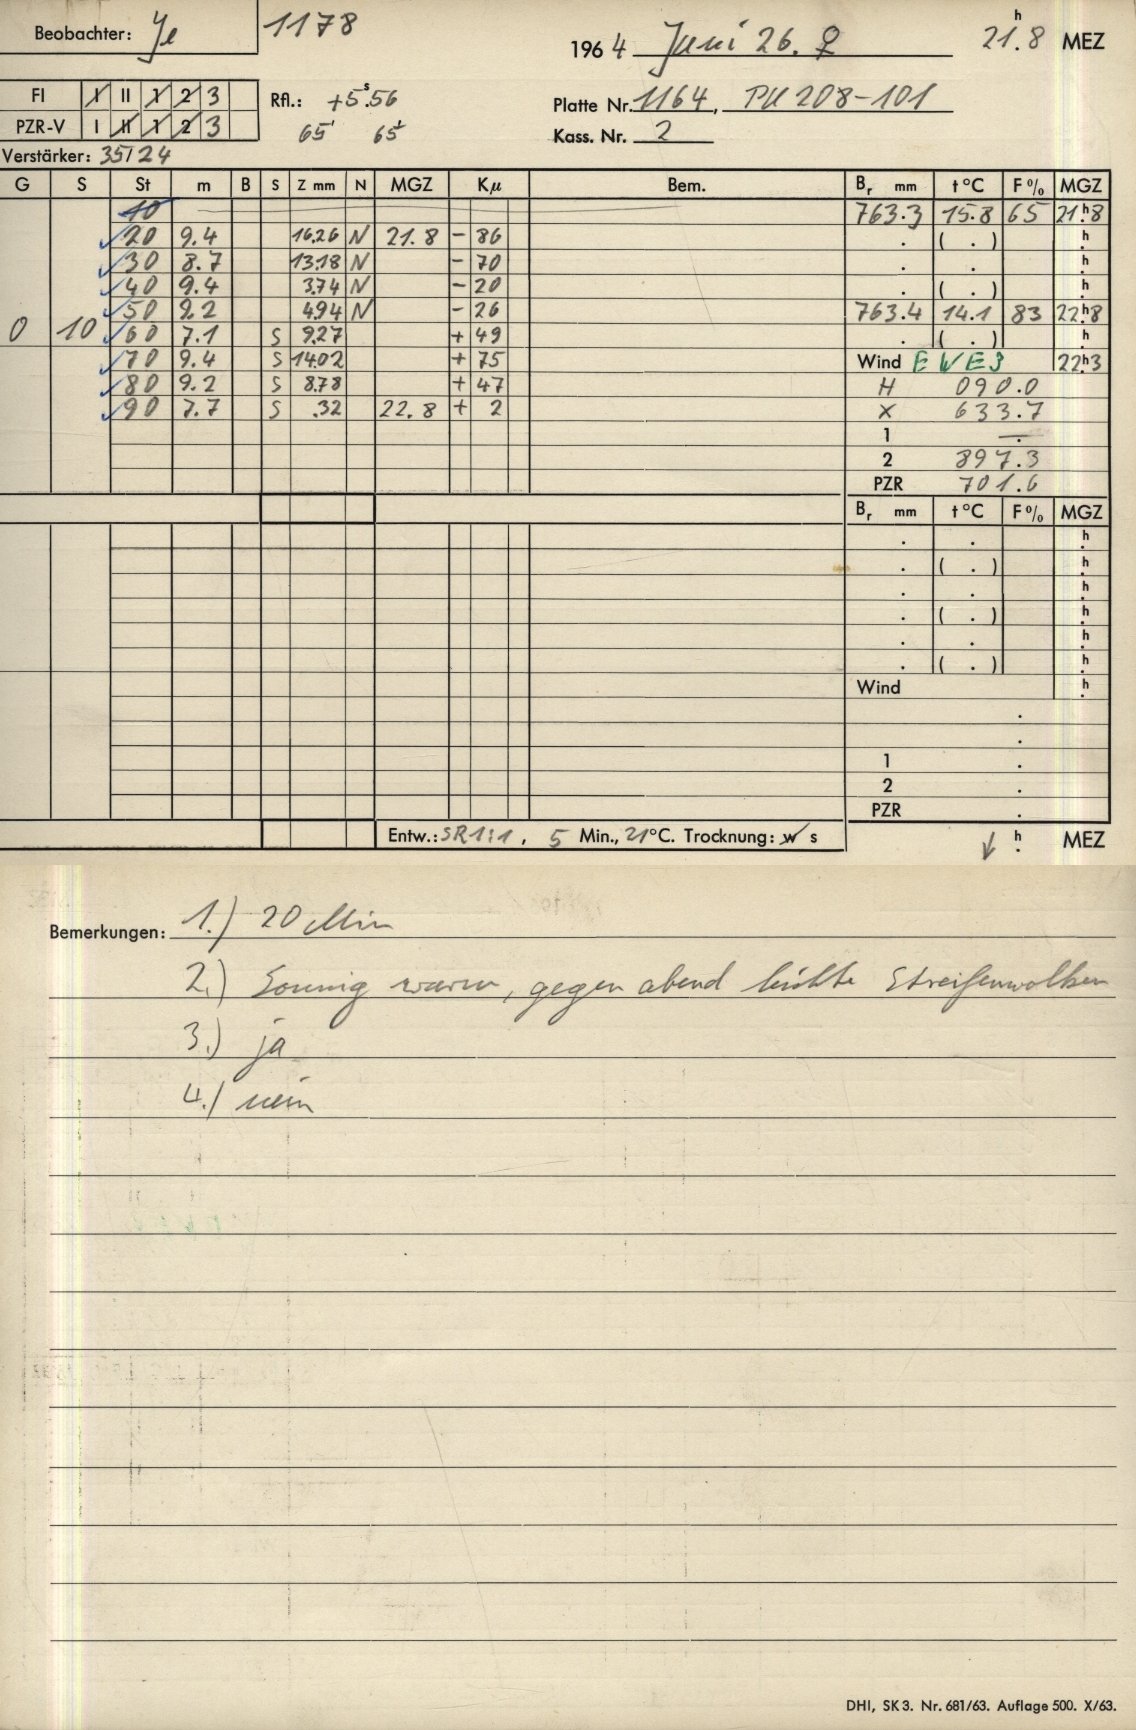 Beobachter: Je 1178
1964 Juni 26. ♀ 21.h8 MEZ
FI I II 1 2 3
PZR-V I II 1 2 3
Rfl.: +5.s56
65' 65'
Platte Nr. 1164, PU 208-101
Kass. Nr. 2
Verstärker: 35/24
G S St m B S Z mm N MGZ Kμ Bem. Br mm t°C F% MGZ
10 763.3 15.8 65 21h.8
20 9.4 16.26 N 21.8 - 86 . ( . ) h.
30 8.7 13.18 N - 70 . . h.
40 9.4 3.74 N - 20 . ( . ) h.
50 9.2 4.94 N - 26 763.4 14.1 83 22h.8
0 10 60 7.1 S 9.27 + 49 . ( . ) h.
70 9.4 S 14.02 + 75 Wind E WE3 22h.3
80 9.2 S 8.78 + 47 H 090.0
90 7.7 S .32 22.8 + 2 X 633.7
1 —.
2 897.3
PZR 701.6
Br mm t°C F% MGZ
. . h.
. ( . ) h.
. . h.
. ( . ) h.
. . h.
. ( . ) h.
Wind h.
.
.
1 .
2 .
PZR .
Entw.: SR 1:1, 5 Min., 21°C. Trocknung: w s
↓ h. MEZ
Bemerkungen: 1.) 20 Min
2.) Sonnig warm, gegen abend leichte Streifenwolken
3.) ja
4.) nein
DHI, SK 3. Nr. 681/63. Auflage 500. X/63.